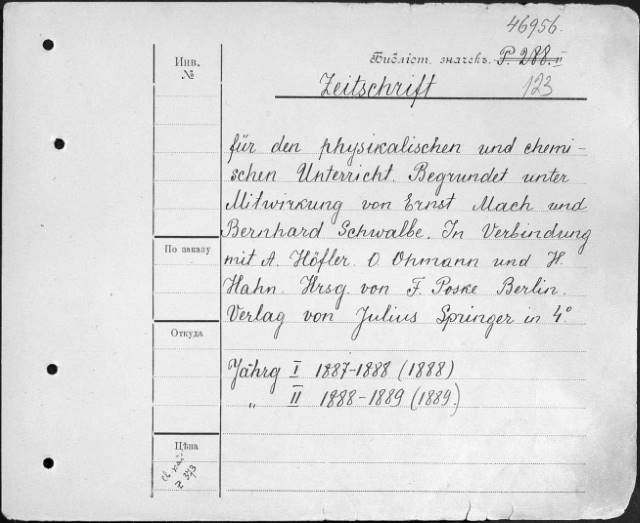 46956.
Инв.
№
Библіот. значекъ. P. 288. II
Zeitschrift 123
für den physikalischen und chemi-
schen Unterricht. Begrundet unter
Mitwirkung von Ernst Mach und
Bernhard Schwalbe. In Verbindung
По заказу
mit A. Höfler. O. Ohmann und H.
Hahn. Hrsg. von F. Poske Berlin.
Verlag von Julius Springer in 4°
Откуда
Jährg I 1887-1888 (1888)
„ II 1888-1889 (1889.)
Цѣна